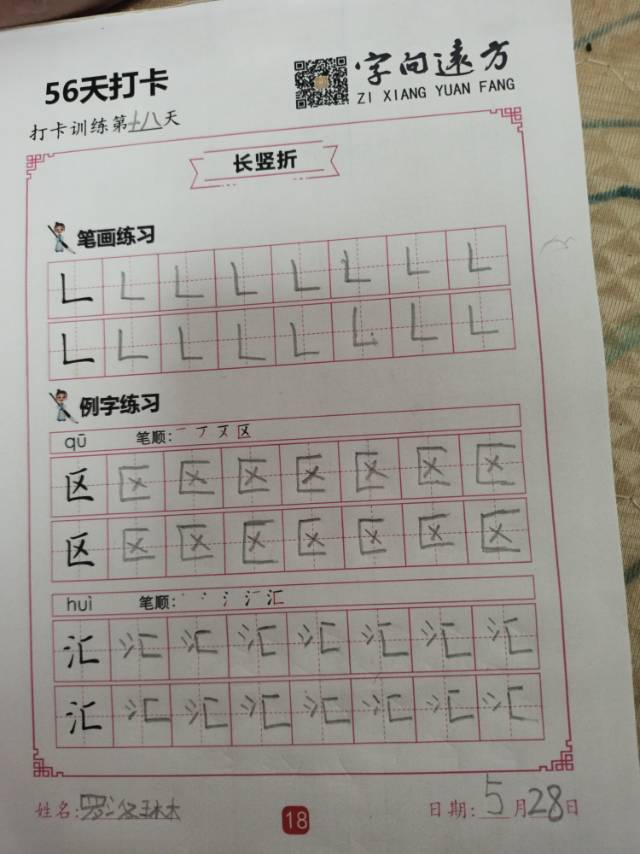 56天打卡
字向远方
ZI XIANG YUAN FANG
打卡训练第十八天
长竖折
笔画练习
𠃊 𠃊 𠃊 𠃊 𠃊 𠃊 𠃊 𠃊
𠃊 𠃊 𠃊 𠃊 𠃊 𠃊 𠃊 𠃊
例字练习
qū 笔顺: 区
区 区 区 区 区 区 区 区
区 区 区 区 区 区 区 区
huì 笔顺: 氵 汇
汇 汇 汇 汇 汇 汇 汇 汇
汇 汇 汇 汇 汇 汇 汇 汇
姓名: 罗 18 日期: 5月28日